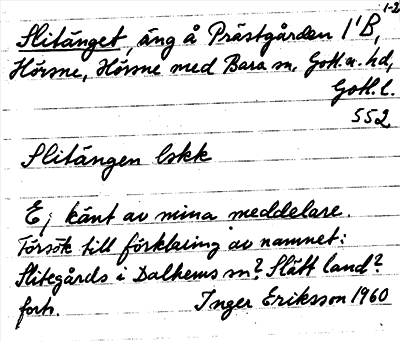 1-2
Slitänget, äng å Prästgården 1¹B,
Hörsne, Hörsne med Bara sn, Gotl. n. hd,
Gotl. l.
552
Slitängen lskk
Ej känt av mina meddelare.
Försök till förklaring av namnet:
Slitegårds i Dalhems sn? Slätt land?
forts. Inger Eriksson 1960